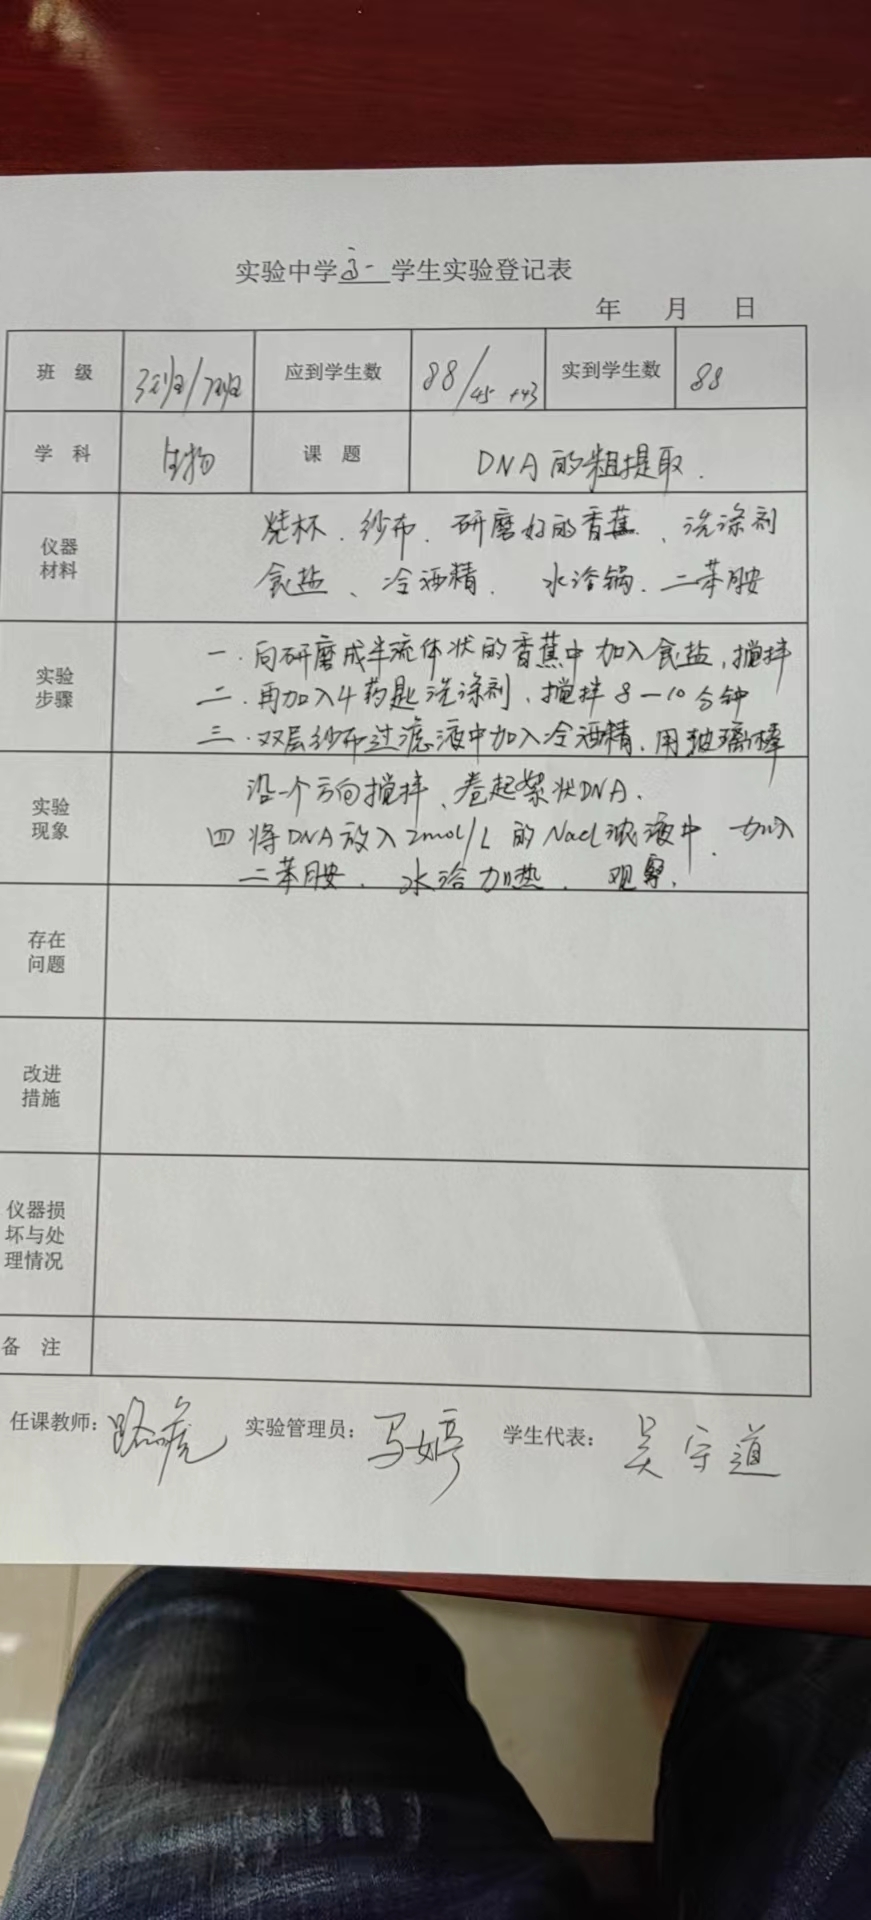 实验中学高一学生实验登记表
年 月 日
班 级 3班/7班 应到学生数 88/45+43 实到学生数 88
学 科 生物 课 题 DNA的粗提取.
仪器材料 烧杯、纱布、研磨好的香蕉、洗涤剂
食盐、冷酒精、水浴锅、二苯胺
实验步骤 一.向研磨成半流体状的香蕉中加入食盐,搅拌
二.再加入4药匙洗涤剂,搅拌8-10分钟
三.双层纱布过滤液中加入冷酒精,用玻璃棒
实验现象 沿一个方向搅拌、卷起絮状DNA.
四 将DNA放入2mol/L的Nacl浓液中.加入
二苯胺.水浴加热.观察.
存在问题
改进措施
仪器损坏与处理情况
备 注
任课教师: 路虎 实验管理员: 马婷 学生代表: 吴守道